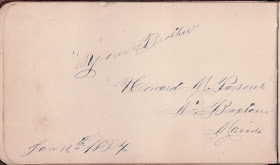 "Your Brother"
Howard M. Parsons
W. Buxton
Maine
Jan. 14th 1884.